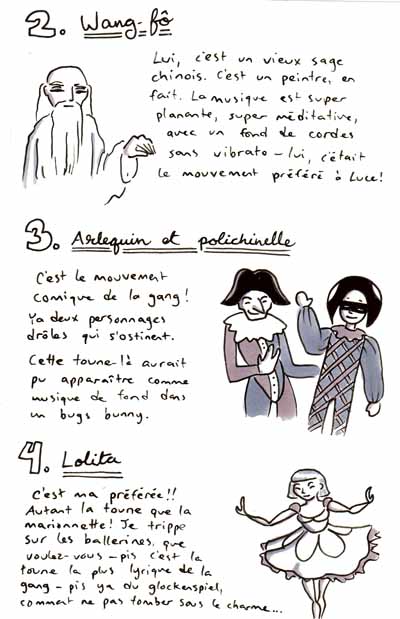 2. Wang-fô
Lui, c'est un vieux sage
chinois. C'est un peintre, en
fait. La musique est super
planante, super méditative,
avec un fond de cordes
sans vibrato - lui, c'était
le mouvement préféré à Luce!
3. Arlequin et polichinelle
C'est le mouvement
comique de la gang!
Ya deux personnages
drôles qui s'ostinent.
Cette toune-là aurait
pu apparaître comme
musique de fond dans
un bugs bunny.
4. Lolita
C'est ma préférée!!
Autant la toune que la
marionnette! Je trippe
sur les ballerines, que
voulez-vous - pis c'est la
toune la plus lyrique de la
gang - pis ya du glockenspiel,
comment ne pas tomber sous le charme...